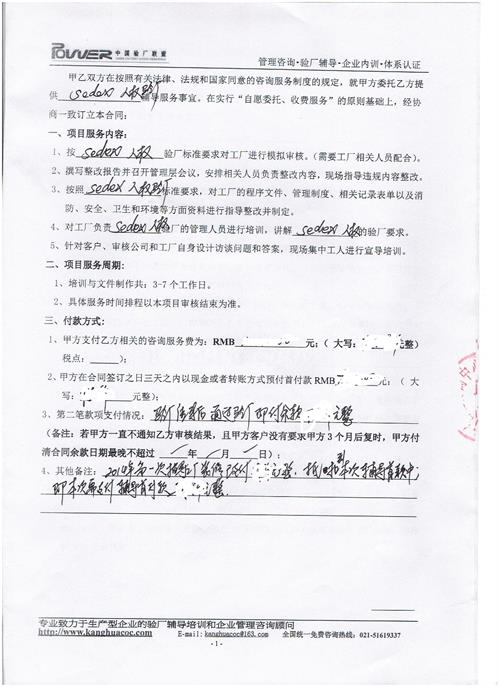 POWER 中国验厂联盟
管理咨询·验厂辅导·企业内训·体系认证
甲乙双方在按照有关法律、法规和国家同意的咨询服务制度的规定，就甲方委托乙方提
供 sedex 人权验厂 辅导服务事宜。在实行“自愿委托、收费服务”的原则基础上，经协
商一致订立本合同：
一、项目服务内容：
1、按 sedex 人权 验厂标准要求对工厂进行模拟审核。（需要工厂相关人员配合）。
2、撰写整改报告并召开管理层会议，安排相关人员负责整改内容，现场指导违规内容整改。
3、按照 sedex 人权验厂 标准要求，对工厂的程序文件、管理制度、相关记录表单以及消
防、安全、卫生和环境等方面资料进行指导整改并制定。
4、对工厂负责 sedex 人权 验厂的管理人员进行培训，讲解 sedex 人权 的验厂要求。
5、针对客户、审核公司和工厂自身设计访谈问题和答案，现场集中工人进行宣导培训。
二、项目服务周期：
1、培训与文件制作共：3-7 个工作日。
2、具体服务时间排程以本项目审核结束为准。
三、付款方式：
1、甲方支付乙方相关的咨询服务费为：RMB 元；（ 大写： 元整）
税点：；
2、甲方在合同签订之日三天之内以现金或者转账方式预付首付款 RMB 元；（ 大
写： 元整）；
3、第二笔款项支付情况：验厂 后通过验厂即付余款 元整
（备注：若甲方一直不通知乙方审核结果，且甲方客户没有要求甲方 3 个月后复时，甲方付
清合同余款日期最晚不超过 年 月 日）：
4、其他备注：2014年第一次 元整，抵 到本次辅导首款中，
即本次 付辅导首付款 元整
专业致力于生产型企业的验厂辅导培训和企业管理咨询顾问
http://www.kanghuacoc.com E-mail: kanghuacoc@163.com 全国统一免费咨询热线：021-51619337
- 1 -